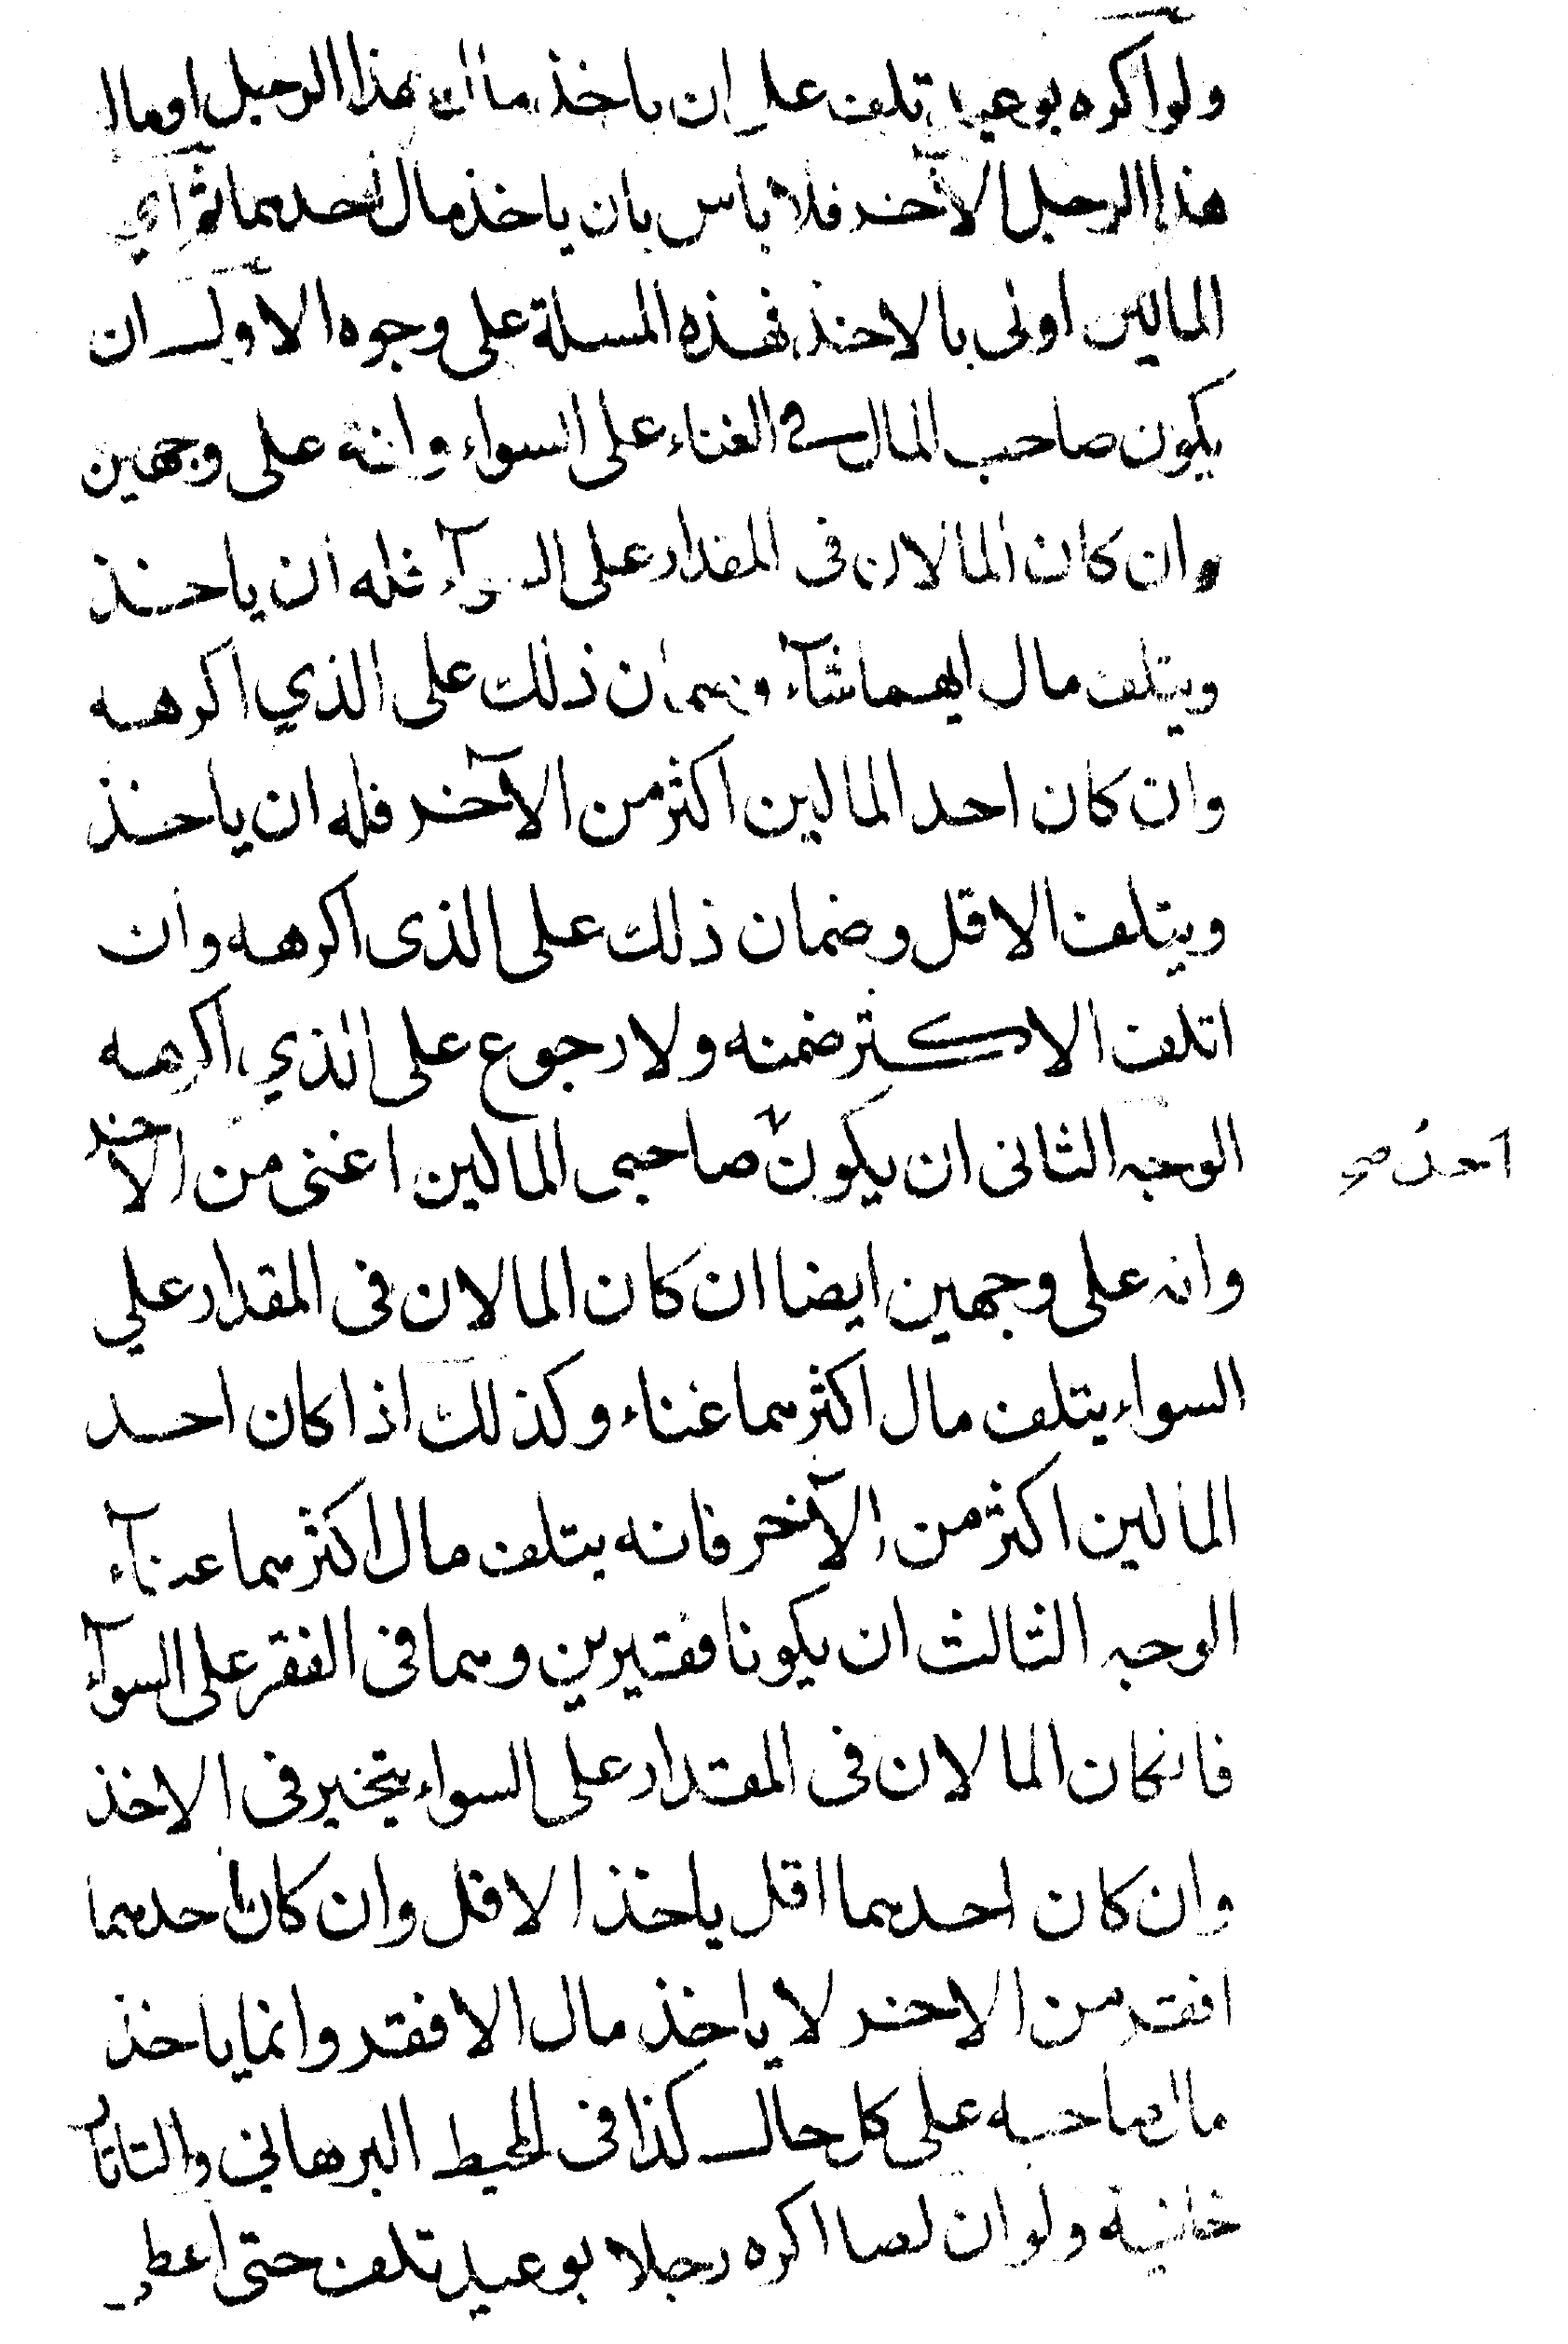 ولو اكره بوعيد تلف على ان ياخذ مال هذا الرجل او مال
هذا الرجل الآخر فلا باس بان ياخذ مال احدهما ثم اي
المالين اولى بالاخذ فهذه المسلة على وجوه الاول ان
يكون صاحب المال في الغناء على السواء وانه على وجهين
وان كان المالان فى المقدار على السوآء فله ان ياخذ
ويتلف مال ايهما شآء وضمان ذلك على الذي اكرهه
وان كان احد المالين اكثر من الآخر فله ان ياخذ
ويتلف الاقل وضمان ذلك على الذى اكرهه وان
اتلف الاكثر ضمنه ولا رجوع على الذي اكرهه
الوجه الثانى ان يكون صاحبى المالين اغنى من الاخر
احد صح
وانه على وجهين ايضا ان كان المالان فى المقدار علي
السواء يتلف مال اكثرهما غناء وكذلك اذا كان احد
المالين اكثر من الآخر فانه يتلف مال اكثرهما غنآء
الوجه الثالث ان يكونا فقيرين وهما فى الفقر على السوآء
فانكان المالان فى المقدار على السواء يتخير فى الاخذ
وان كان احدهما اقل ياخذ الاقل وان كان احدهما
افقر من الاخر لا ياخذ مال الافقر وانما ياخذ
مال صاحبه على كل حال كذا فى المحيط البرهاني والتاتار
خانية ولو ان لصا اكره رجلا بوعيد تلف حتى اعطى